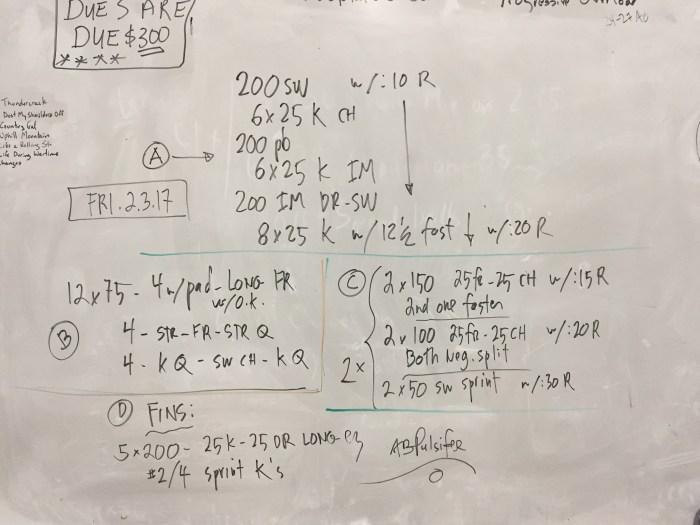 DUES ARE
DUE $300
****
Progressive Overload
Thundercrack
Dust My Shoulders Off
Country Gal
Uphill Mountain
Like a Rolling St
Life During Wartime
Changes
200 SW w/:10 R
6x25 K CH
200 pb
6x25 K IM
200 IM DR-SW
8x25 K w/12½ fast ↓ w/:20 R
A →
FRI. 2.3.17
12x75 - 4 w/pad - LONG FR
w/o.k.
B
4 - STR-FR-STR Q
4 - K Q - SW CH - K Q
C
2x
2x150 25fr-25 CH w/:15 R
2nd one faster
2x100 25fr-25 CH w/:20R
Both Neg. split
2x50 sw sprint w/:30 R
D FINS:
5x200 - 25K-25 DR LONG ez
#2/4 sprint K's
ABPulsifer